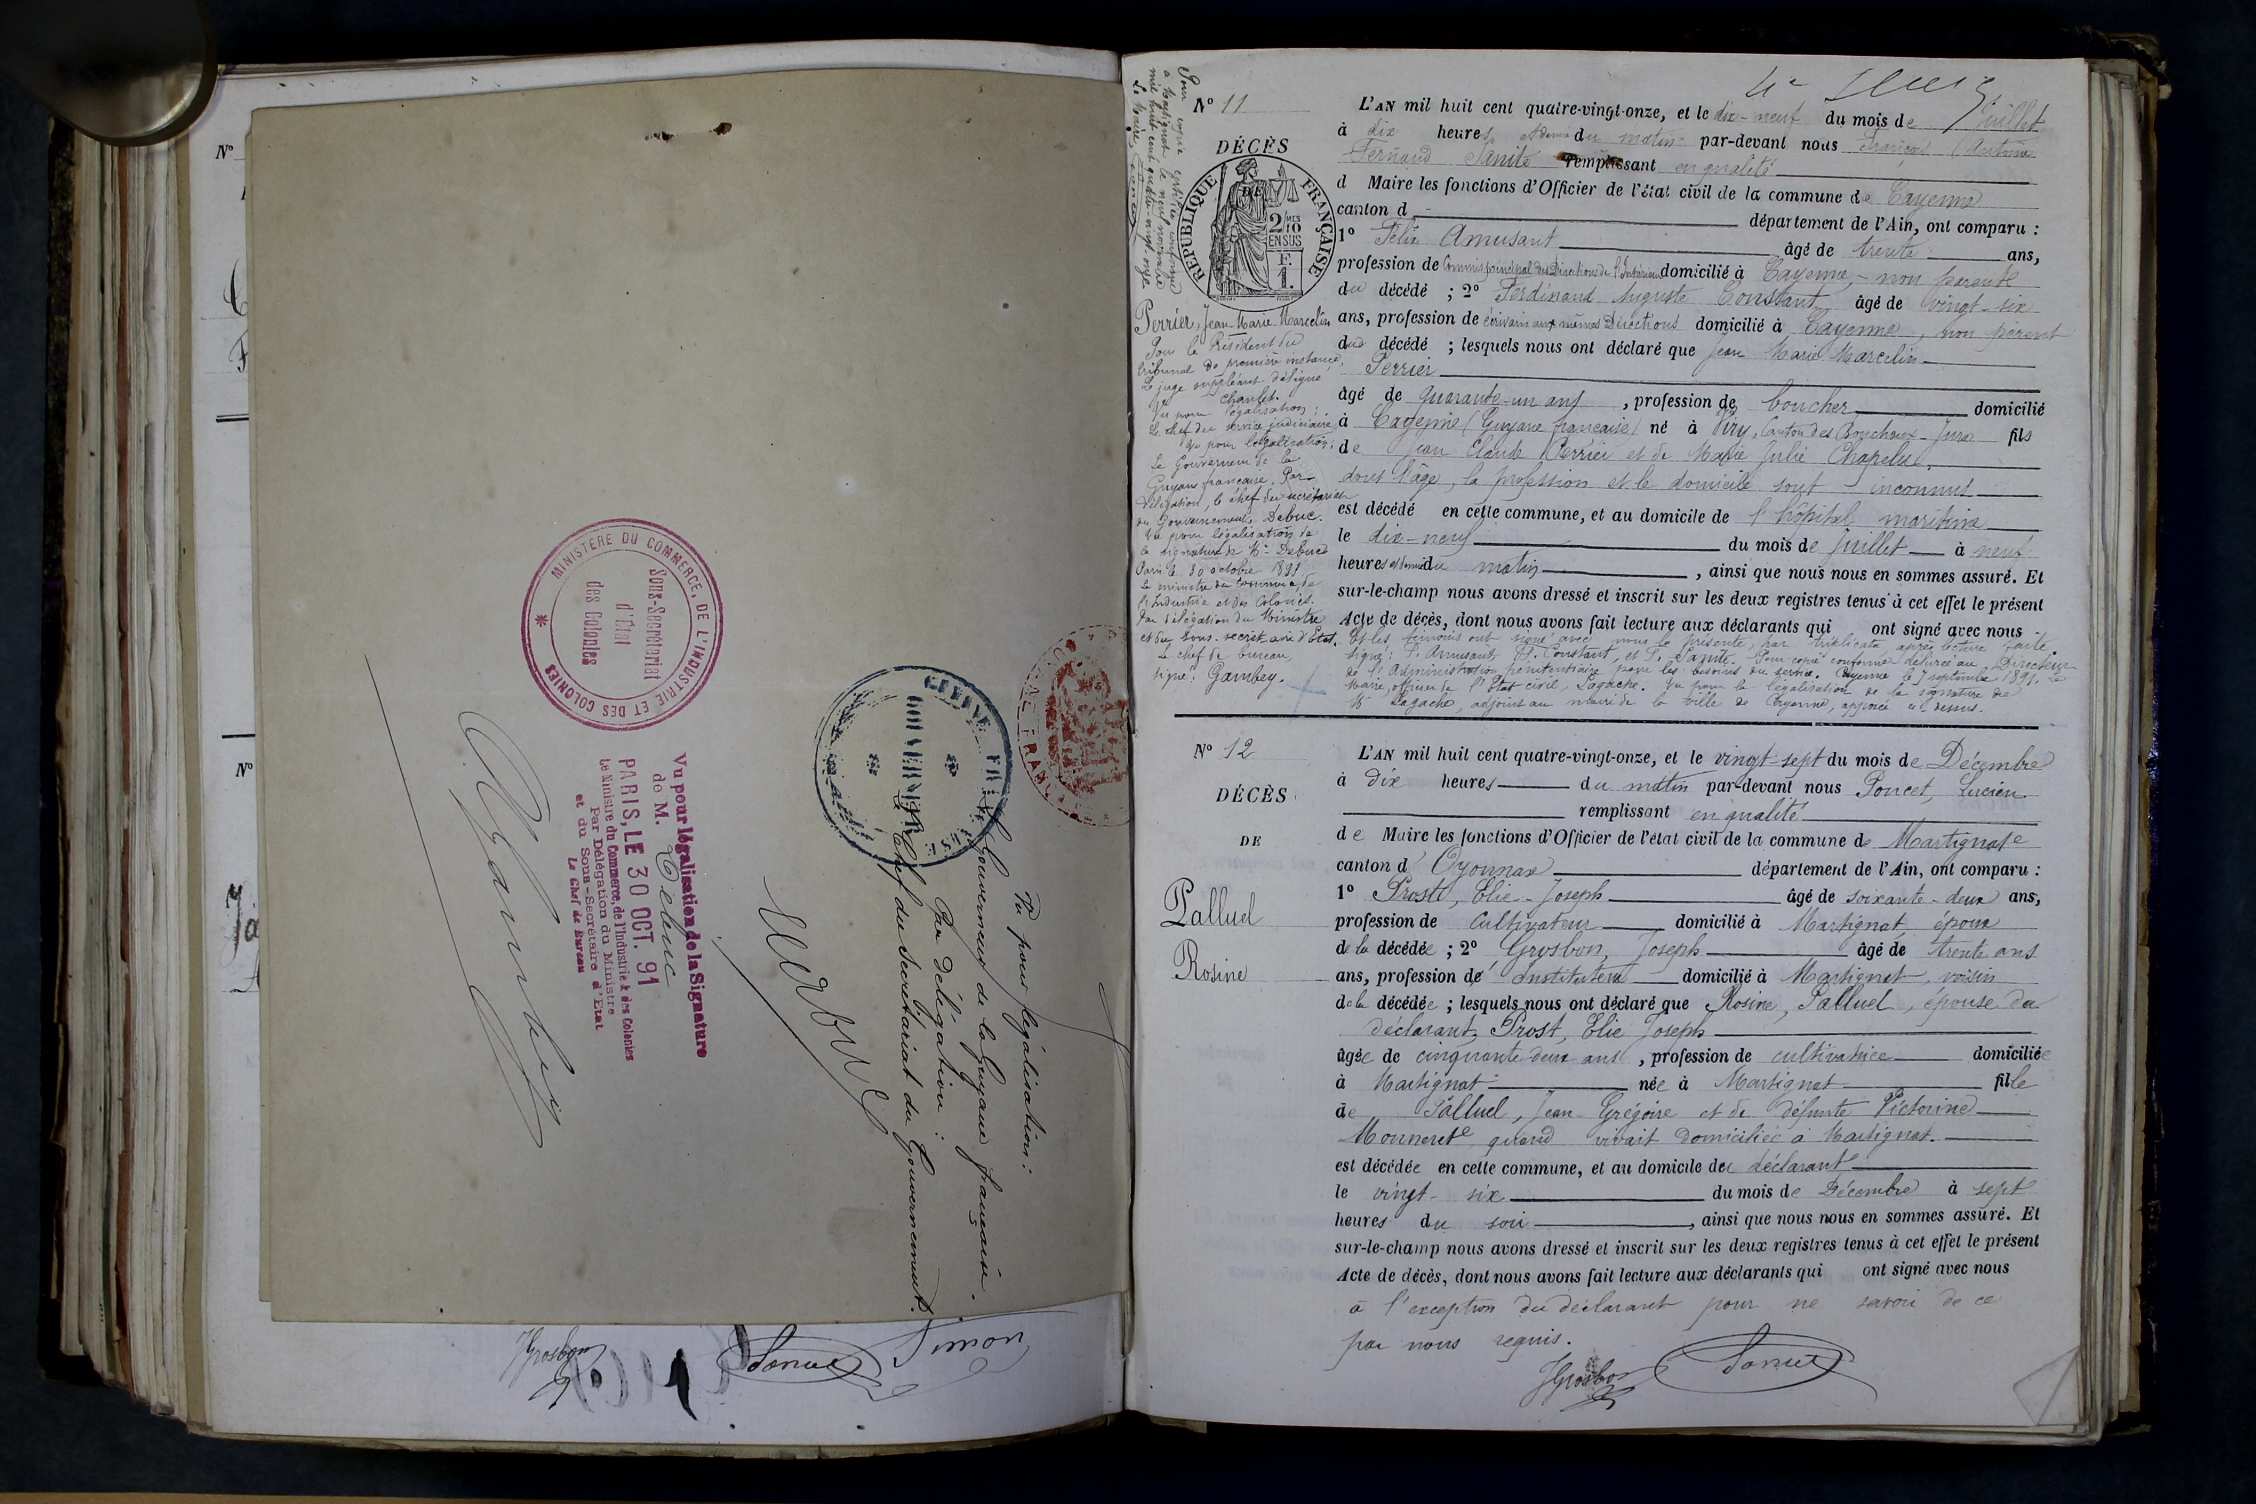 N°
N°
MINISTÈRE DU COMMERCE, DE L'INDUSTRIE ET DES COLONIES
Sous-Secrétariat
d'Etat
des Colonies
Vu pour légalisation de la Signature
de M. Debuc
PARIS, LE 30 OCT. 91
Le Ministre du Commerce, de l'Industrie & des Colonies
Par Délégation du Ministre
et du Sous-Secrétaire d'Etat
Le Chef de Bureau
Gambey
Vu pour légalisation:
Le Gouverneur de la Guyane française.
Par Délégation:
Le Chef du Secrétariat du Gouvernement.
Debuc
JGrosbon
Poncet
Simon
Pour copie certifiée conforme
à Martignat le neuf novembre
mil huit cent quatre-vingt onze
Le Maire
N° 11
DÉCÈS
RÉPUBLIQUE FRANÇAISE
DE
2/10 MES
EN SUS
F.
1.
Perrier, Jean-Marie-Marcelin
Pour le Président du
tribunal de première instance,
Le juge suppléant délégué
Charlet.
Vu pour légalisation:
Le chef du service judiciaire
Vu pour légalisation:
Le Gouverneur de la
Guyane française. Par
délégation, le chef du secrétariat
du Gouvernement: Debuc.
Vu pour légalisation de
la signature de Mr Debuc
Paris le 30 octobre 1891
Le ministre du Commerce de
l'Industrie et des Colonies.
Par délégation du Ministre
et du Sous-secrétaire d'Etat,
Le chef de bureau,
signé: Gambey.
L'AN mil huit cent quatre-vingt-onze, et le dix-neuf du mois de Juillet
à dix heures et demie du matin par-devant nous François Antoine
Fernand Sanite remplissant en qualité
d Maire les fonctions d'Officier de l'état civil de la commune de Cayenne
canton d département de l'Ain, ont comparu :
1° Félix Amusant âgé de trente ans,
profession de Commis principal des Directions de l'Intérieur domicilié à Cayenne, non parent
du décédé ; 2° Ferdinand Auguste Constant âgé de vingt-six
ans, profession de écrivain aux mêmes Directions domicilié à Cayenne, non parent
dud décédé ; lesquels nous ont déclaré que Jean Marie Marcelin
Perrier
âgé de quarante-un ans , profession de boucher domicilié
à Cayenne (Guyane française) né à Viry, Canton des Bouchoux-Jura fils
de Jean Claude Perrier et de Marie Julie Chapelu,
dont l'âge, la profession et le domicile sont inconnus
est décédé en cette commune, et au domicile de l'hôpital maritime
le dix-neuf du mois de Juillet à neuf
heures et demie du matin , ainsi que nous nous en sommes assuré. Et
sur-le-champ nous avons dressé et inscrit sur les deux registres tenus à cet effet le présent
Acte de décès, dont nous avons fait lecture aux déclarants qui ont signé avec nous
Et les témoins ont signé avec nous le présente, par triplicata après lecture faite.
signé: F. Amusant, F. Constant, et F. Sanite. Pour copie conforme délivrée au Directeur
de l'Administration pénitentiaire pour les besoins du service. Cayenne le 7 septembre 1891. Le
Maire, officier de l'Etat civil, Lagache. Vu pour la légalisation de la signature de
Mr Lagache, adjoint au maire de la ville de Cayenne, apposée ci-dessus.
N° 12
DÉCÈS
DE
Palluel
Rosine
L'AN mil huit cent quatre-vingt-onze, et le vingt-sept du mois de Décembre
à dix heures du matin par-devant nous Poncet, Lucien
remplissant en qualité
de Maire les fonctions d'Officier de l'état civil de la commune de Martignat
canton d'Oyonnax département de l'Ain, ont comparu :
1° Prost, Elie-Joseph âgé de soixante-deux ans,
profession de Cultivateur domicilié à Martignat, époux
de la décédée ; 2° Grosbon, Joseph âgé de trente ans
ans, profession d'Instituteur domicilié à Martignat, voisin
de la décédée ; lesquels nous ont déclaré que Rosine, Palluel, épouse du
déclarant, Prost, Elie Joseph
âgée de cinquante deux ans , profession de cultivatrice domiciliée
à Martignat née à Martignat fille
de Palluel, Jean-Grégoire et de défunte Victorine
Monneret quand vivait domiciliée à Martignat.
est décédée en cette commune, et au domicile du déclarant
le vingt-six du mois de Décembre à sept
heures du soir , ainsi que nous nous en sommes assuré. Et
sur-le-champ nous avons dressé et inscrit sur les deux registres tenus à cet effet le présent
Acte de décès, dont nous avons fait lecture aux déclarants qui ont signé avec nous
à l'exception du déclarant pour ne savoir de ce
par nous requis.
JGrosbon
Poncet